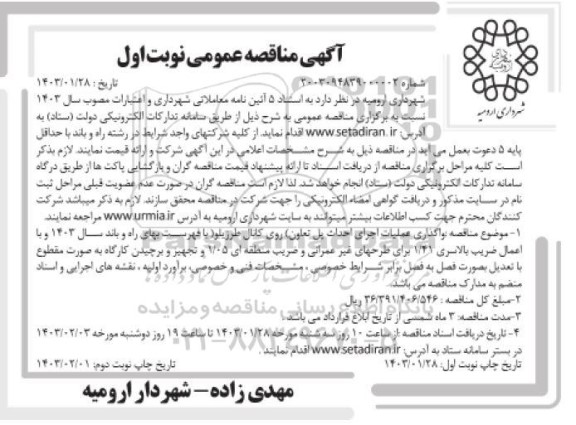 آگهی مناقصه عمومی نوبت اول
شهرداری ارومیه
شماره: ۲۰۰۳۰۹۴۸۳۹۰۰۰۰۰۲ تاریخ: ۱۴۰۳/۰۱/۲۸
شهرداری ارومیه در نظر دارد به استناد ۵ آئین نامه معاملاتی شهرداری و اعتبارات مصوب سال ۱۴۰۳
نسبت به برگزاری مناقصه عمومی به شرح ذیل از طریق سامانه تدارکات الکترونیکی دولت (ستاد) به
آدرس: www.setadiran.ir اقدام نماید. از کلیه شرکتهای واجد شرایط در رشته راه و باند با حداقل
پایه ۵ دعوت بعمل می آید در مناقصه ذیل به شرح مشخصات اعلامی در این آگهی شرکت و ارائه قیمت نمایند. لازم بذکر
است کلیه مراحل برگزاری مناقصه از دریافت اسناد تا ارائه پیشنهاد قیمت مناقصه گران و بازگشایی پاکت ها از طریق درگاه
سامانه تدارکات الکترونیکی دولت (ستاد) انجام خواهد شد. لذا لازم است مناقصه گران در صورت عدم عضویت قبلی مراحل ثبت
نام در سایت مذکور و دریافت گواهی امضاء الکترونیکی را جهت شرکت در مناقصه محقق سازند. لازم به ذکر میباشد شرکت
کنندگان محترم جهت کسب اطلاعات بیشتر میتوانند به سایت شهرداری ارومیه به آدرس www.urmia.ir مراجعه نمایند.
۱-موضوع مناقصه واگذاری عملیات اجرای احداث پل تعاون) روی کانال طرزیلو( با فهرست بهای راه و باند سال ۱۴۰۳ و با
اعمال ضریب بالاسری ۱/۴۱ برای طرحهای غیر عمرانی و ضریب منطقه ای ۱/۰۵ و تجهیز و برچیدن کارگاه به صورت مقطوع
با تعدیل بصورت فصل به فصل برابر شرایط خصوصی، مشخصات فنی و خصوصی، برآورد اولیه، نقشه های اجرایی و اسناد
منضم به مدارک مناقصه می باشد.
۲-مبلغ کل مناقصه: ۳۶/۳۹۱/۴۰۶/۵۴۶ ریال
۳-مدت مناقصه: ۳ ماه شمسی از تاریخ ابلاغ قرارداد می باشد.
۴- تاریخ دریافت اسناد مناقصه: از ساعت ۱۰ روز سه شنبه مورخه ۱۴۰۳/۰۱/۲۸ تا ساعت ۱۹ روز دوشنبه مورخه ۱۴۰۳/۰۲/۰۳
در بستر سامانه ستاد به آدرس: www.setadiran.ir اقدام نمایند.
تاریخ چاپ نوبت اول: ۱۴۰۳/۰۱/۲۸ تاریخ چاپ نوبت دوم: ۱۴۰۳/۰۲/۰۱
مهدی زاده - شهردار ارومیه